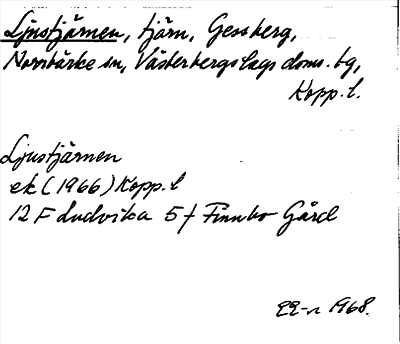 Ljustjärnen, tjärn, Gessberg,
Norrbärke sn, Västerbergslags doms. tg,
Kopp. l.
Ljustjärnen
ek (1966) Kopp. l
12 F Ludvika 5 f Finnbo Gård
1968.